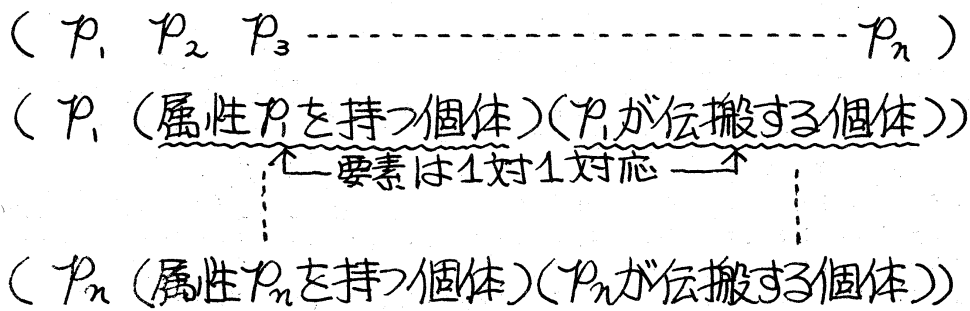 ( P₁ P₂ P₃ ------------------------ Pₙ )
( P₁ (属性P₁を持つ個体)(P₁が伝搬する個体))
↑ 要素は1対1対応 ↑
( Pₙ (属性Pₙを持つ個体)(Pₙが伝搬する個体))